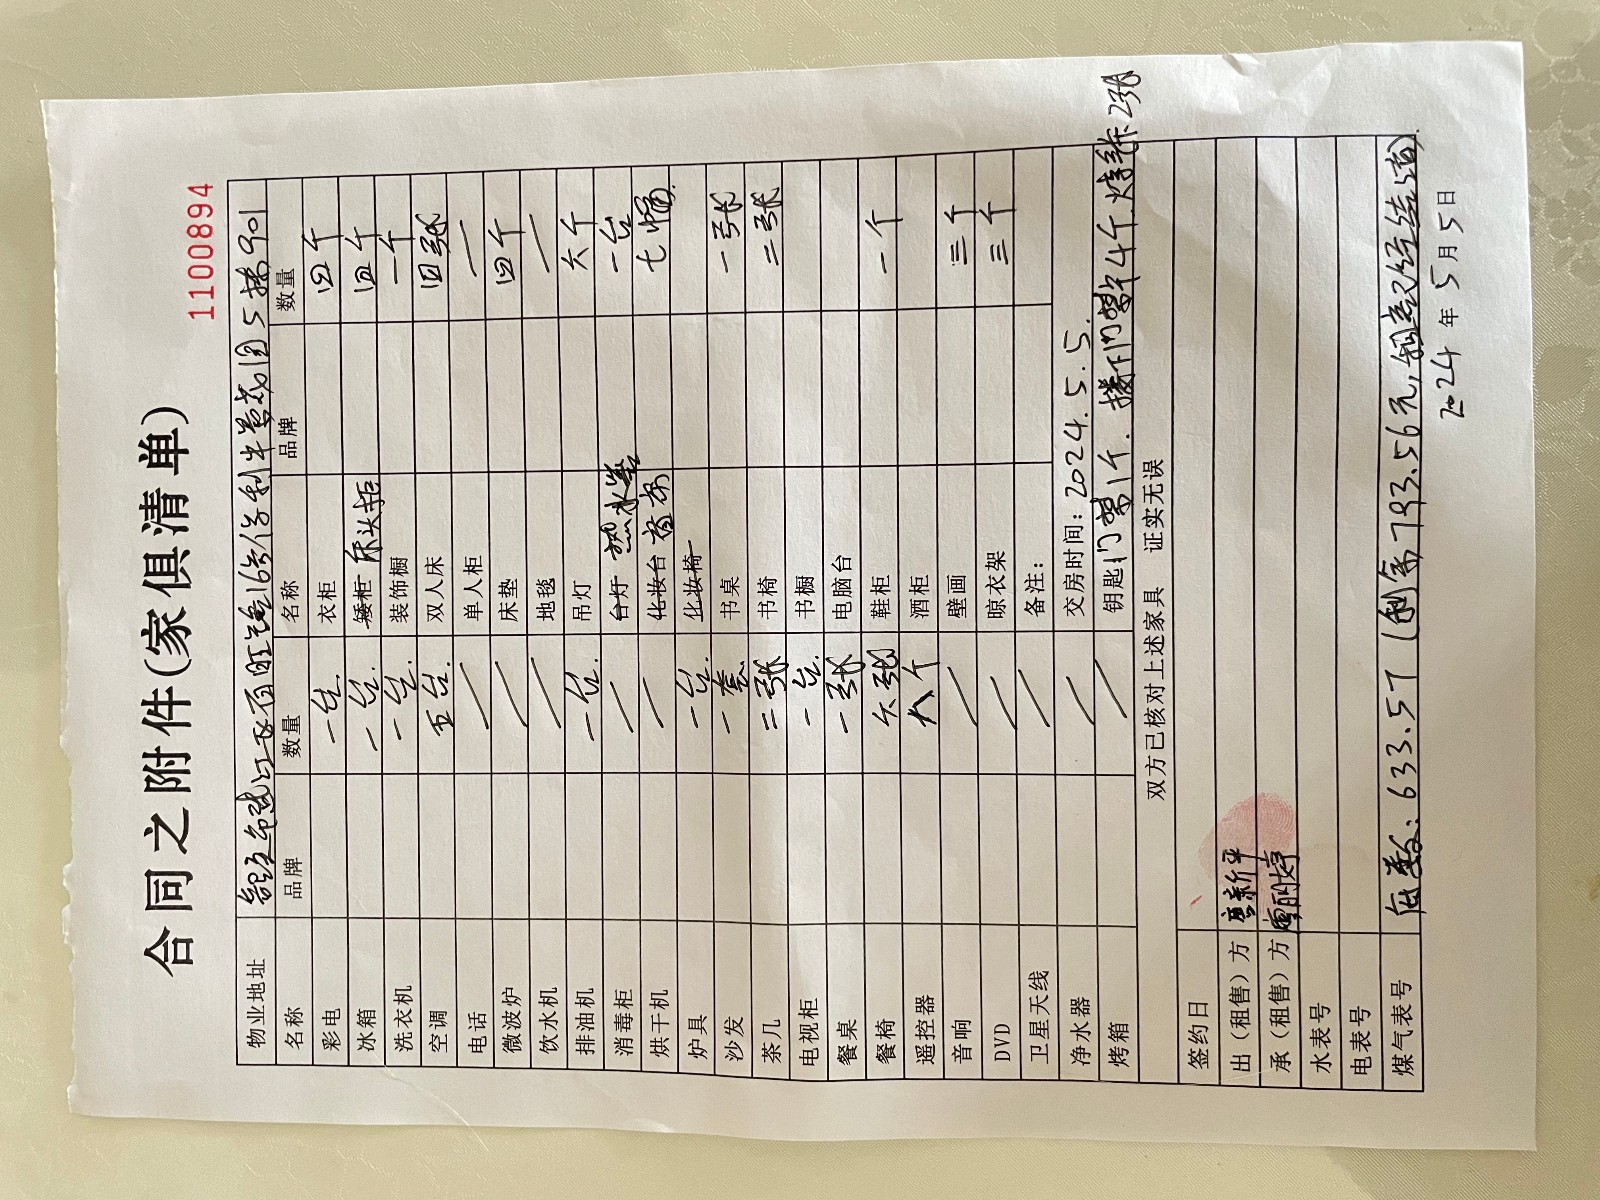 合同之附件(家俱清单)
1100894
物业地址 利半花园5栋901
名称 品牌 数量 名称 品牌 数量
彩电 一台. 衣柜 四个
冰箱 一台. 矮柜 床头柜 四个
洗衣机 一台. 装饰橱 一个
空调 五台. 双人床 四张
电话 / 单人柜 /
微波炉 / 床垫 四个
饮水机 / 地毯 /
排油机 一台. 吊灯 六个
消毒柜 / 台灯 热水器 一台
烘干机 / 化妆台 窗帘 七幅.
炉具 一台. 化妆椅
沙发 一套. 书桌 一张
茶几 二张 书椅 二张
电视柜 一台. 书橱
餐桌 一张 电脑台
餐椅 六张 鞋柜 一个
遥控器 六个 酒柜
音响 / 壁画 三个
DVD / 晾衣架 三个
卫星天线 / 备注:
净水器 / 交房时间: 2024.5.5.
烤箱 / 钥匙 门禁1个. 楼下门禁4个.
双方已核对上述家具 证实无误
签约日
出(租售)方
承(租售)方
水表号
电表号
煤气表号 底数: 633.57 (剩余793.56元,
2024年5月5日